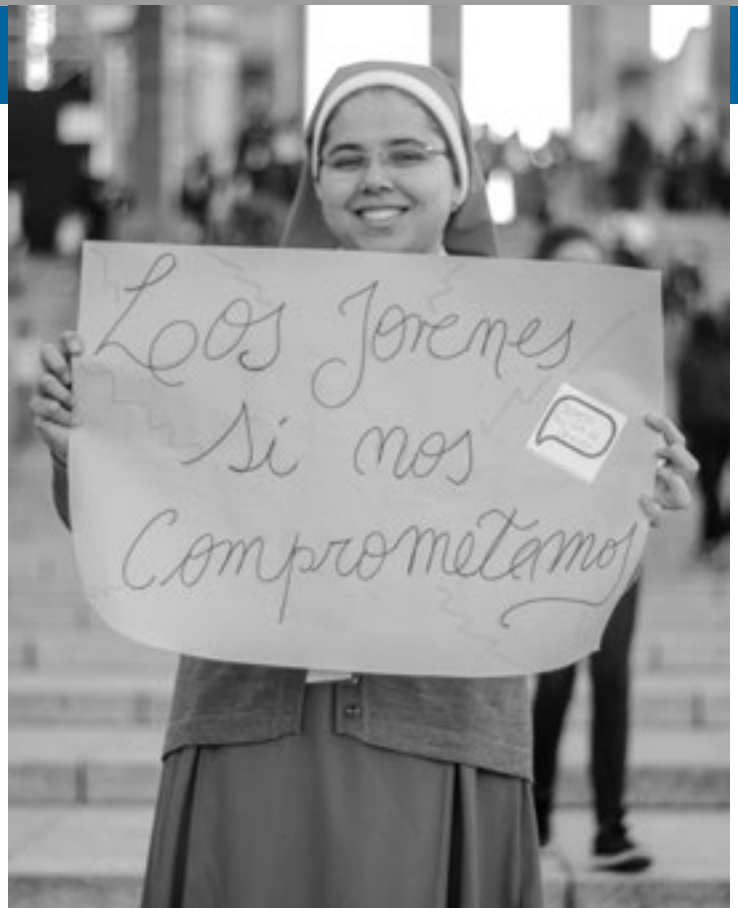 Los Jovenes
si nos
Comprometemos